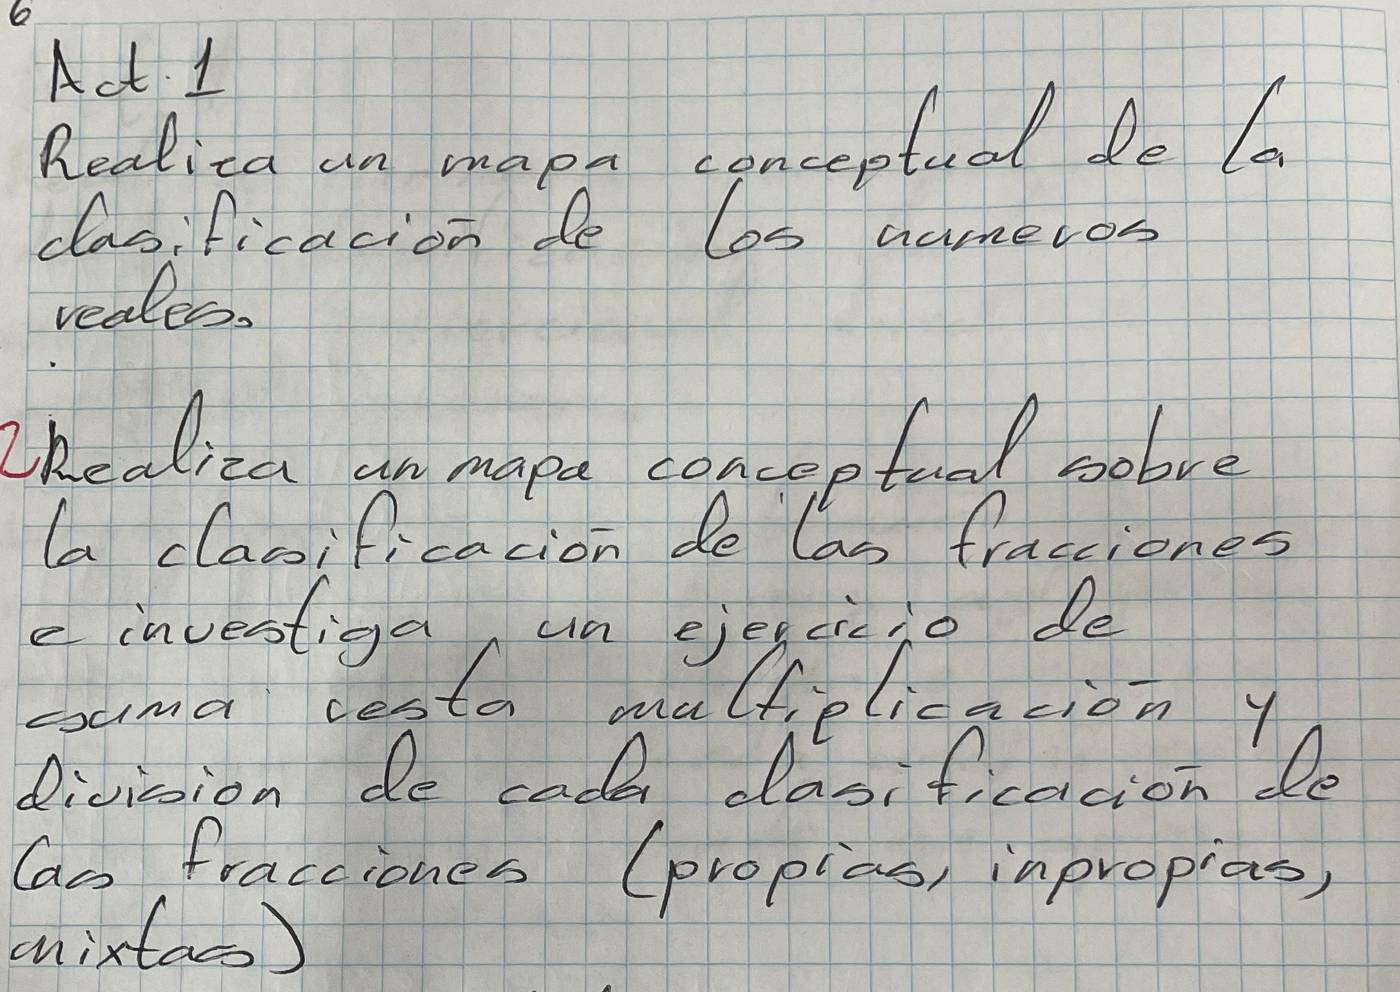 6
Act. 1
Realiza un mapa conceptual de la
clasificación de los numeros
reales.
2 Realiza un mapa conceptual sobre
la clasificación de las fracciones
e investiga un ejercicio de
suma resta multiplicación y
división de cada clasificación de
las fracciones (propias, inpropias,
mixtas)